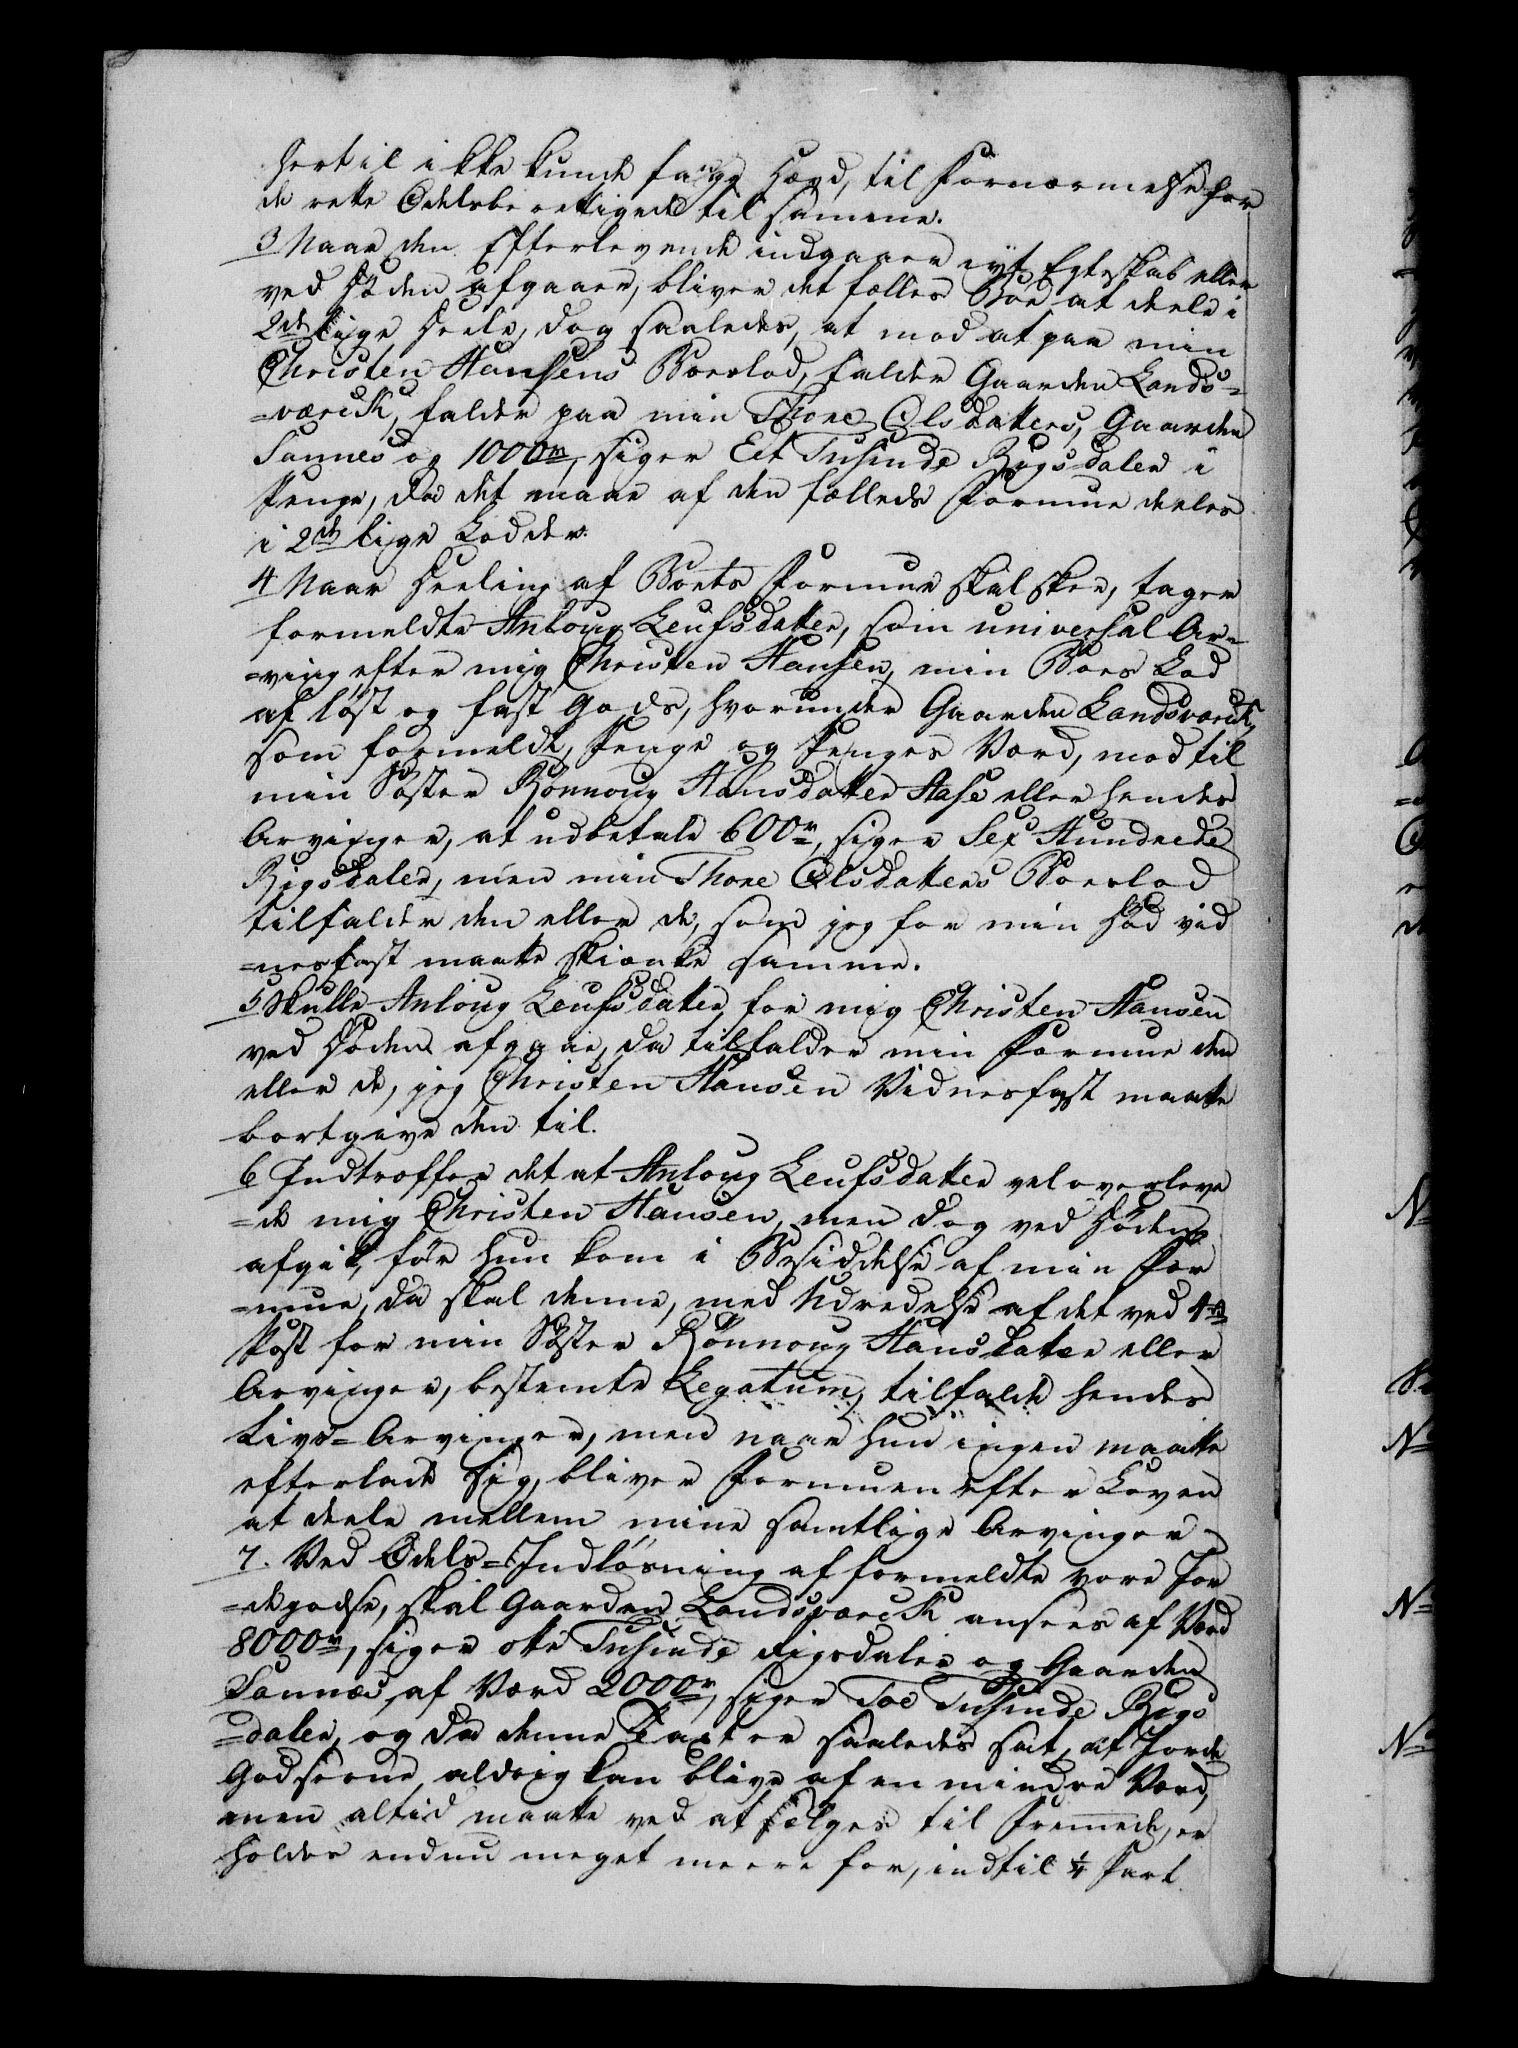 hertil ikke kunde faae Hævd, til Fornærmelse for
de rette Odelsberettigede til samme.
3 Naar den Efterlevende indgaaer nyt Egteskab eller
ved Døden afgaaer, bliver det fælles Boe at deele i
2de lige Deele, dog saaledes, at mod at paa min
Christen Hansens Boeslod, falder Gaarden Lands-
=værck, falder paa min Thore Olsdatters, Gaarden
Sannes og 1000 rd, siger Eet Tusinde Rigsdaler i
Penge, da det meere af den fælleds Formue deeles
i 2de lige Lodder.
4 Naar Deeling af Boets Formue skal skee, tager
formeldte Anloug Leufsdatter, som universal Ar=
=ving efter mig Christen Hansen, min Boes Lod
af løst og fast Gods, hvorunder Gaarden Landsværck,
som formeldt, Penge og Penges Værd, mod til
min Søster Rønnoug Hansdatter Aase eller hendes
Arvinger, at udbetale 600 rd, siger Sex Hundrede
Rigsdaler, men min Thore Olsdatters Boeslod
tilfalder den eller de, som jeg for min Død vid
=nesfast maatte skienke samme.
5 Skulle Anloug Leufsdatter for mig Christen Hansen
ved Døden afgaae, da tilfalder min Formue den
eller de, jeg Christen Hansen Vidnesfast maatte
bortgive den til.
6 Indtreffer det at Anloug Leufsdatter vel overleve
=de mig Christen Hansen, men dog ved Døden
afgik, før hun kom i Besiddelse af min For
=mue, da skal denne, med Udredelse af det ved 4de
Post for min Søster Rønnoug Hansdatter eller
Arvinger, bestemte Legatum, tilfalde hendes
Livs=Arvinger, men naar hun ingen maatte
efterlade sig, bliver Formuen efter Loven
at deele mellem mine samtlige Arvinger
7. Ved Odels=Indløsning af formeldte vore Jor
=degodse, skal Gaarden Landsværck ansees af Værd
8000 rd, siger otte Tusinde Rigsdaler og Gaarden
Sannes af Værd 2000 rd, siger Toe Tusinde Rigs
=daler, og da denne Taxt er saaledes sat, at Jorde
Godserne aldrig kan blive af en mindre Værd,
men altid maatte ved at sælges til Fremede, er
holdes endnu meget meere for, indtil 1/4 Part